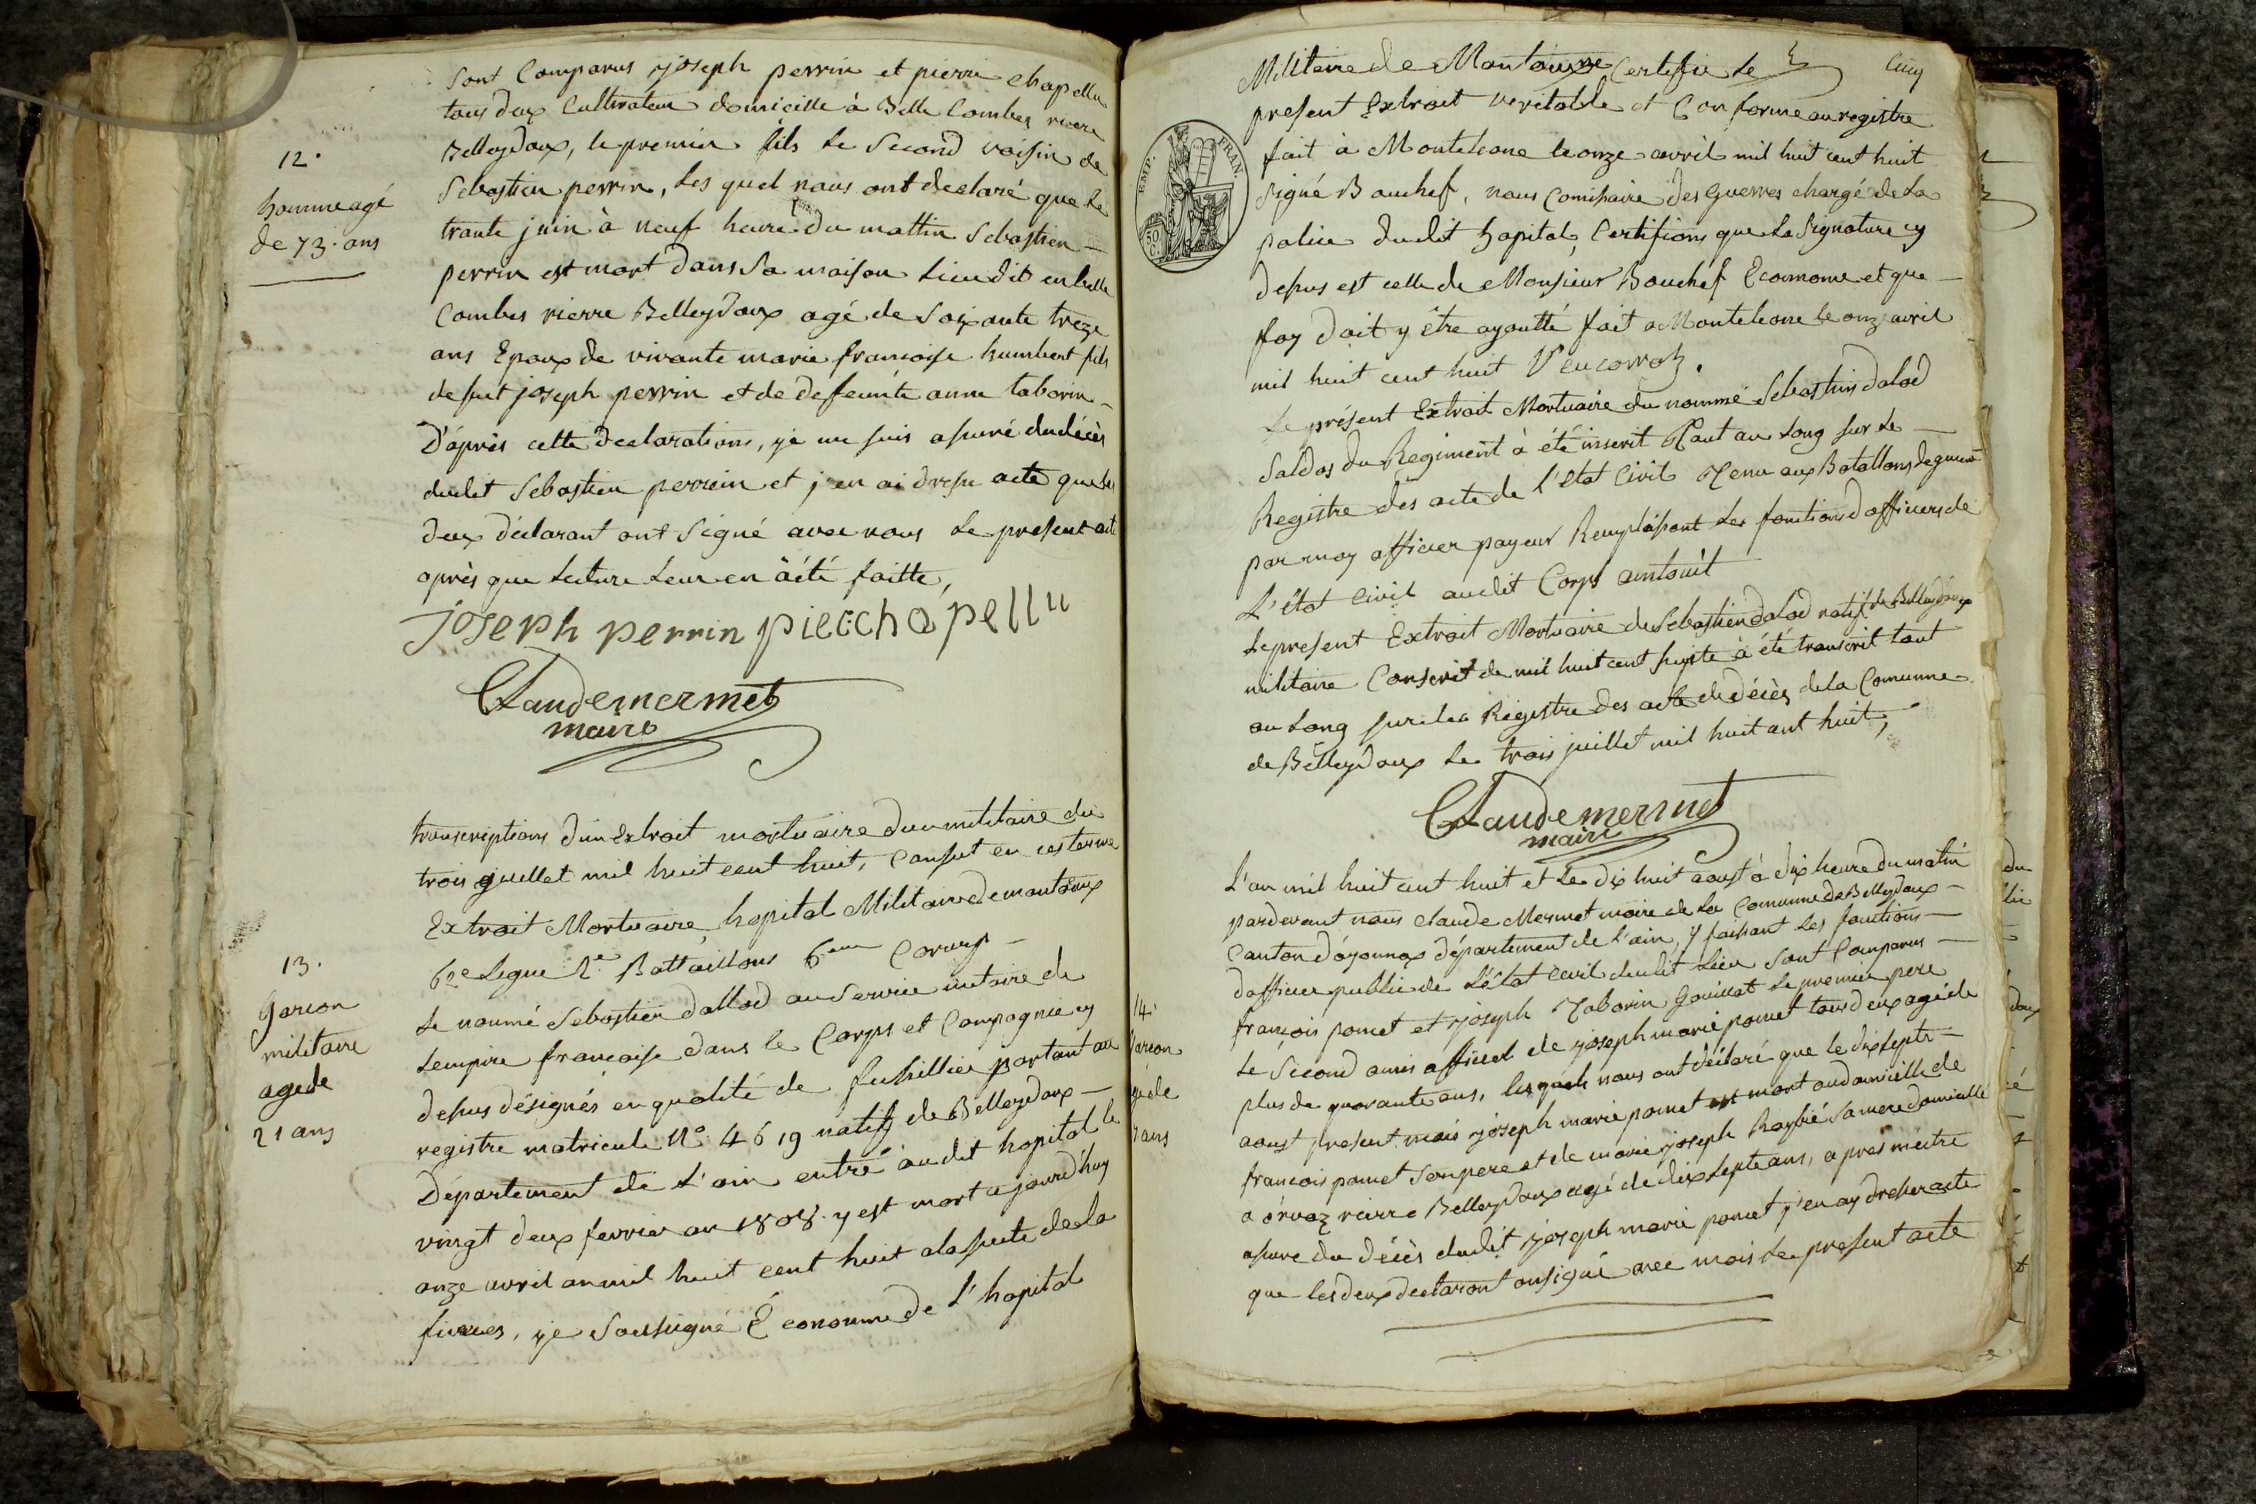 Sont Comparus joseph perrin et pierre chapellu
tous deux Cultivateur domicille à Belle Combes riere
Belleydoux, le premier fils le Second voisin de
Sebastien perrin, les quel nous ont declaré que le
trante juin à neuf heure du mattin Sebastien
perrin est mort dans Sa maison lieu dit en belle
Combes rierre Belleydoux agé de Soixante treze
ans Epoux de vivante marie francoise humbert fils
de fut joseph perrin et de defeunte anne taborin
D'áprès cette declarations, je me suis assuré du décès
dudit Sebastien perrein et j'en ai dresse acte que les
deux déclarant ont Signé avec nous Le present acte
après que lecture leur en à été faitte,
12.
homme agé
de 73. ans
joseph perrin pierre chapellu
Claude mermet
maire
transcriptions d'un extrait mortuaire d'un militaire du
trois juellet mil huit cent huit, Consut en ces terme
Extrait Mortuaire, hopital Militaire de
62e Legne 2e Battaillons 6eme
Le nommé Sebastien dallod au Service mitaire de
Lempire francaise dans le Corps et Compagnie cy
depus désignés en qualité de fusillier portant au
registre matricule No 4619 natif de Belleydoux
Département de L'ain entré audit hopital le
vingt deux fevrier an 1808. y est mort ajourd'huy
onze avril an mil huit cent huit alasuite de la
fievres, je Soussigné Économe de L'hopital
13.
Garcon
militaire
agé de
21 ans
Militaire de Certifie Le
present Extrait veritable et Conforme au registre
fait à Monteleone le onze avril mil huit cent huit
Signé Bouchef, nous Comissaire des Guerres chargé de La
police dudit hapital, Certifions que La Signature cy
depus est celle de Monsieur Bouchef Econnome et que
foy doit y être ajoutté fait a Monteleone le onze avril
mil huit cent huit
Cinq
EMP. FRAN.
50
C.
Le présent Extrait Mortuaire du nommé Sebastien dalod
Saldas du Regiment à été inscrit Tout au Long sur Le
Registre des acte de l'etat Civil Tenu aux Batallons de guerre
par moy officier payeur Remplassant Les fonctions d'officiers de
L'état Civil audit Corps
Le present Extrait Mortuaire de Sebastien dalod natif de Belleydoux
militaire Conscrit de mil huit cent à été transcrit tout
au Long sur Les Registre des acte de décès de la Comunne
de Belleydoux Le trois juillet mil huit ant huit,
Claude mermet
maire
L'an mil huit cent huit et Le dix huit aoust à dix heure du matin
pardevant nous Claude Mermet maire de La Comunne de Belleydoux
Canton d'óyonnax département de L'ain, y faissant Les fonctions
d'officier public de L'état Civil dudit Lieu Sont Comparus
françois pomet et joseph Taborin Gouillat Le premier pere
Le Second amis officiel de joseph marie pomet tous deux agé de
plus de quarante ans, lesquels nous ont déclaré que le dixsepte
aoust present mois joseph marie pomet est mort audomicille de
francois pomet Son pere et de marie joseph Sa mere domicillié
a órvaz rierre Belleydoux agé de dix Septe ans, apres metre
assure du décès dudit joseph marie pomet j'en ay dresser acte
que les deux declarant onsigné avec mois Le present acte
14.
Garcon
agé de
17 ans